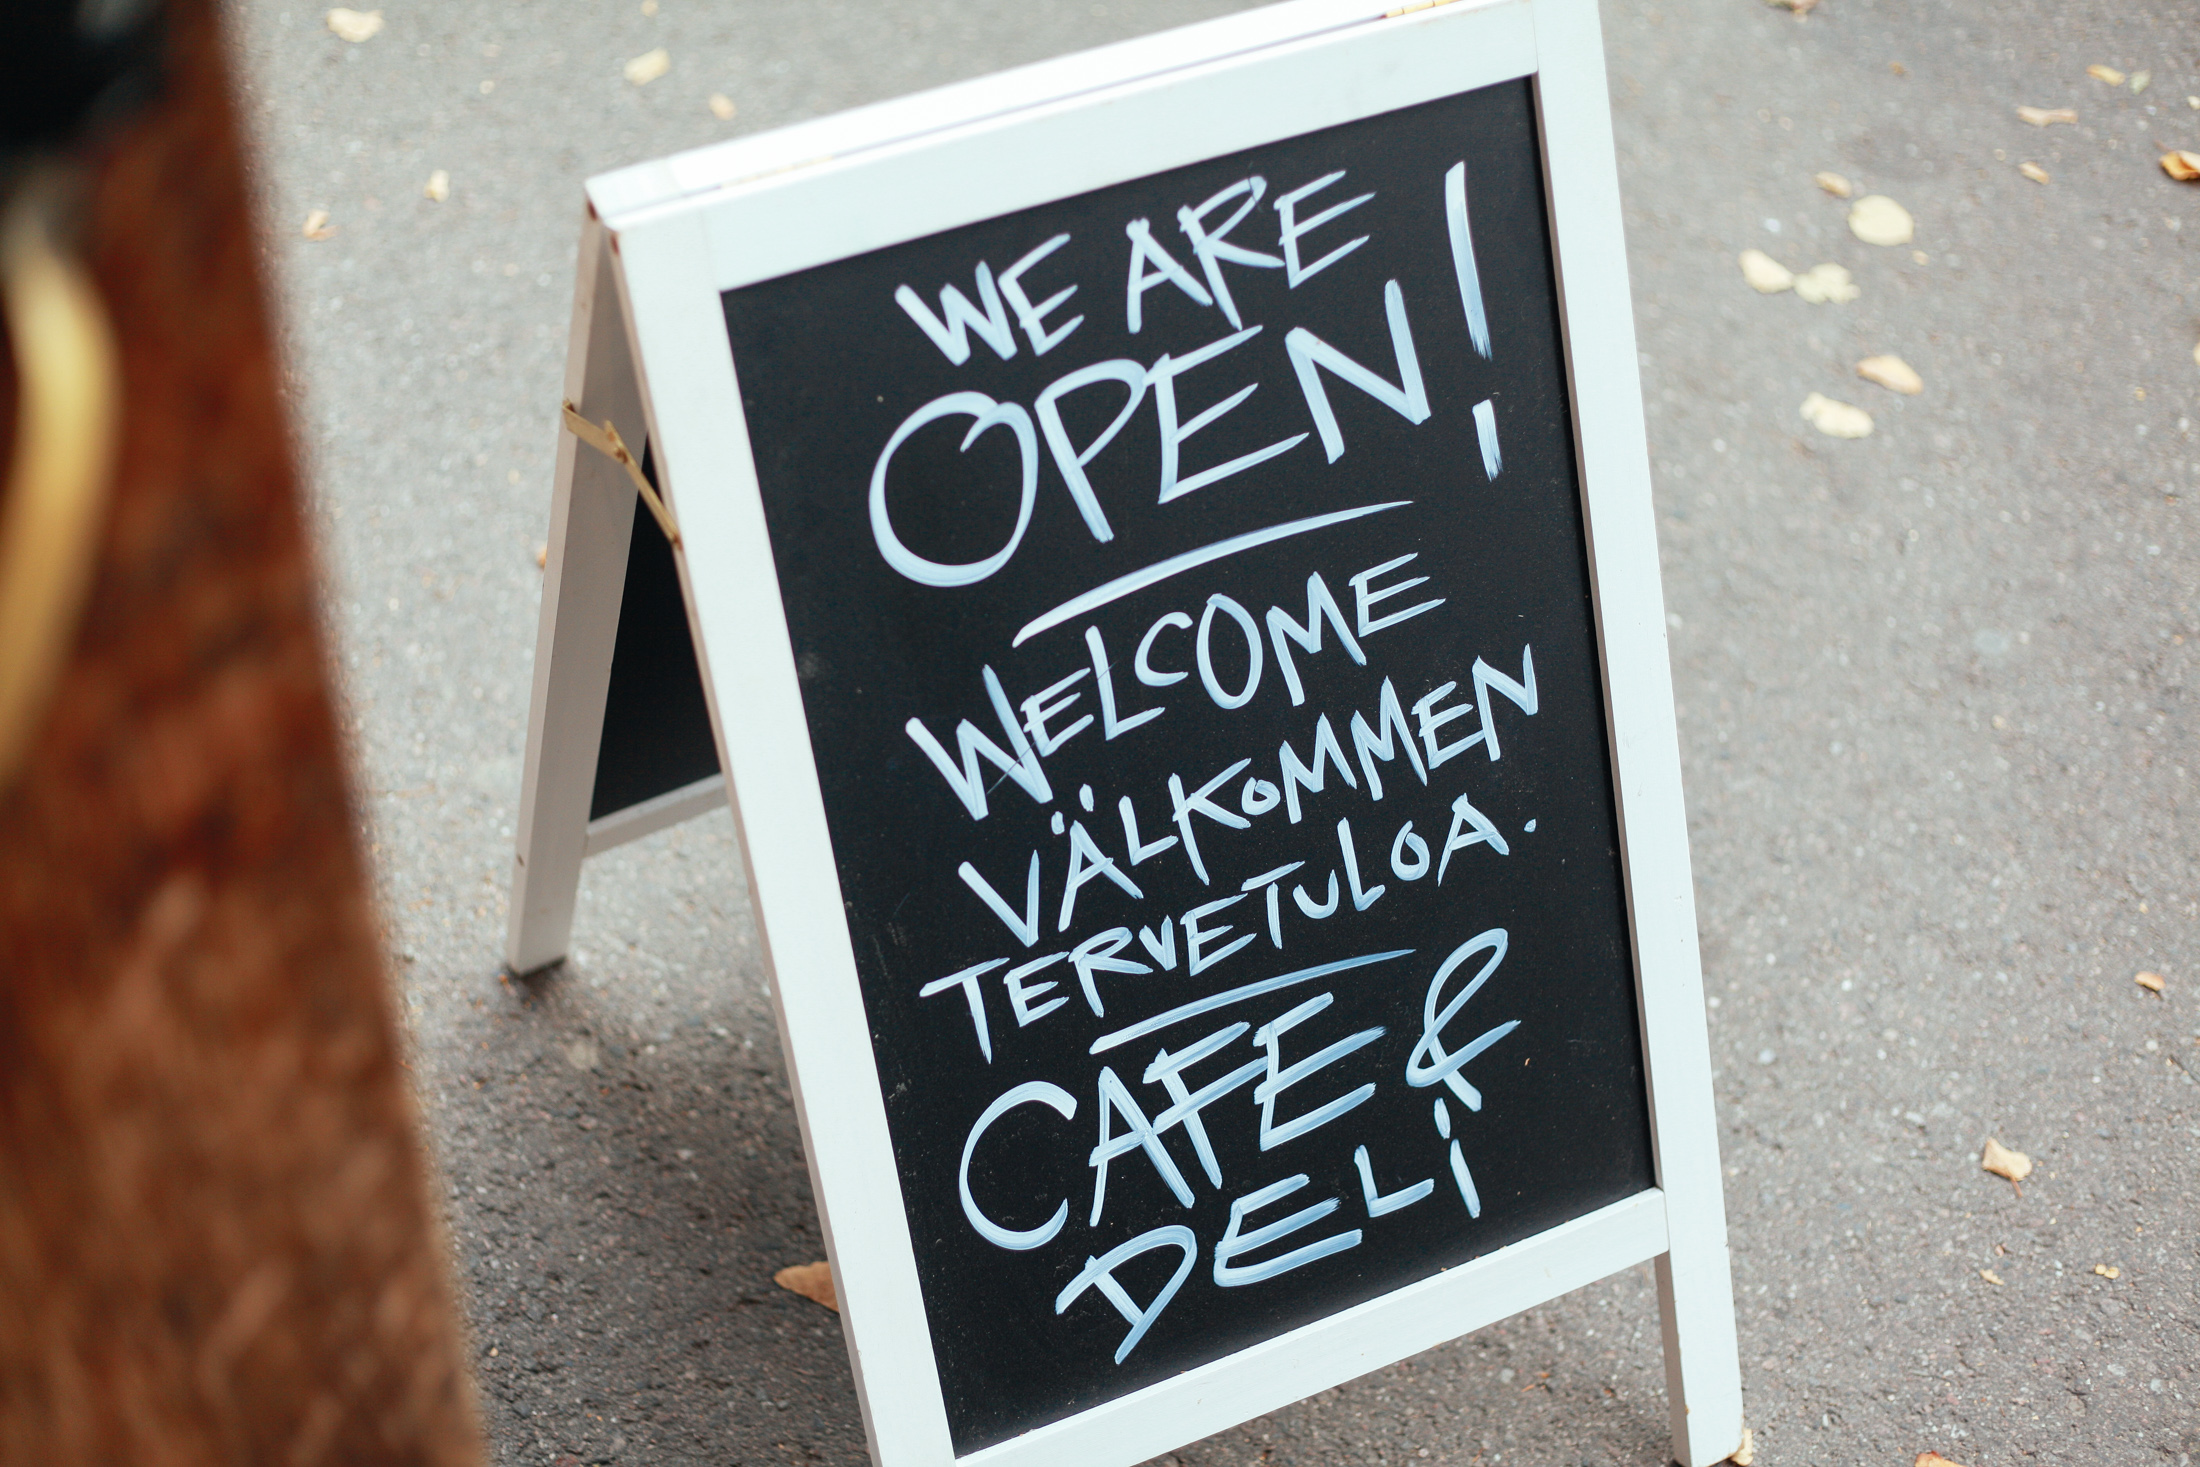 WE ARE
OPEN!
WELCOME
VÄLKOMMEN
TERVETULOA.
CAFE &
DELi